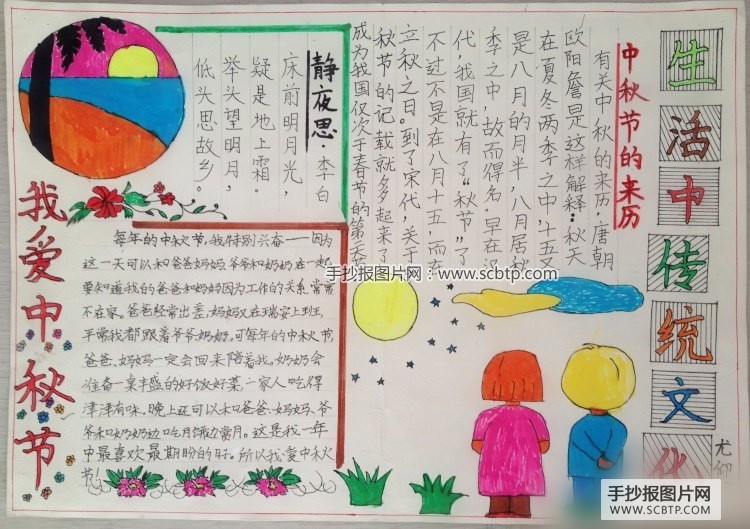 生活中传统文化
尤
中秋节的来历
有关中秋的来历,唐朝
欧阳詹是这样解释:“秋天
在夏冬两季之中,十五又
是八月的月半,八月居秋
季之中,故而得名.早在汉
代,我国就有了“秋节”了
不过不是在八月十五,而在
立秋之日。到了宋代,关于
秋节的记载就多起来了
成为我国仅次于春节的第二
静夜思·李白
床前明月光,
疑是地上霜。
举头望明月,
低头思故乡。
我爱中秋节
每年的中秋节,我特别兴奋——因为
这一天可以和爸爸妈妈爷爷和奶奶在一起
要知道我的爸爸和妈妈因为工作的关系,常常
不在家。爸爸经常出差,妈妈又在瑞安上班,
平常我都跟着爷爷、奶奶。可每年的中秋节,
爸爸、妈妈一定会回来陪着我。奶奶会
准备一桌丰盛的好饭好菜,一家人吃得
津津有味。晚上还可以和爸爸、妈妈、爷
爷和奶奶边吃月饼边赏月。这是我一年
中最喜欢最期盼的时。所以我爱中秋
节!
手抄报图片网:www.scbtp.com
手抄报图片网
WWW.SCBTP.COM